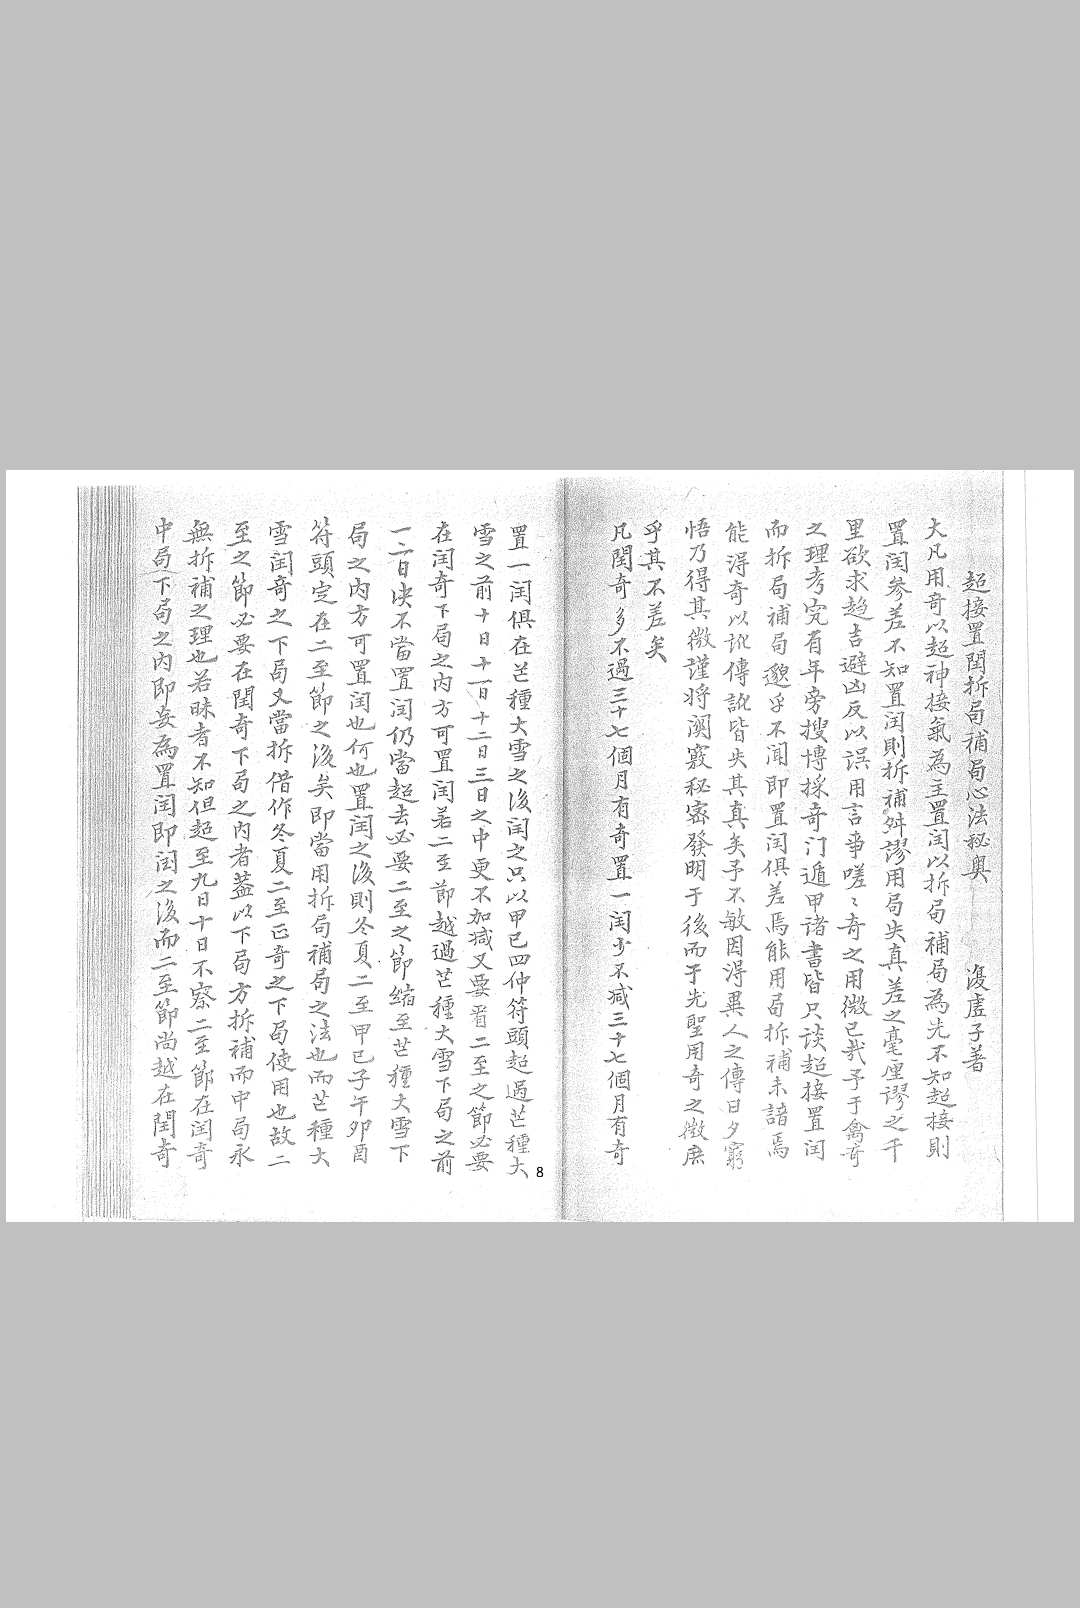 超接置閏拆局補局心法秘奥 復虛子著
大凡用奇以超神接氣為主置闰以拆局補局為先不知超接則
置闰參差不知置闰則拆補舛謬用局失真差之毫厘謬之千
里欲求趋吉避凶反以误用言事嗟々奇之用微已哉予于禽奇
之理考究有年旁搜博採奇门遁甲诸書皆只谈超接置闰
而拆局補局邈乎不闻即置闰俱差焉能用局拆補未諳焉
能得奇以訛傳訛皆失其真矣予不敏因得異人之傳日夕窮
悟乃得其微謹将阃竅秘密發明于後而于先聖用奇之微庶
乎其不差矣
凡閏奇多不過三十七個月有奇置一闰少不减三十七個月有奇
置一闰俱在芒種大雪之後闰之只以甲己四仲符頭超過芒種大
雪之前十日十一日十二日三日之中更不加减又要看二至之節必要
在闰奇下局之内方可置闰若二至節越過芒種大雪下局之前
一二日决不當置闰仍當超去必要二至之節縮至芒種大雪下
局之内方可置闰也何也置闰之後則冬夏二至甲己子午卯酉
符頭定在二至節之後矣即當用拆局補局之法也而芒種大
雪闰奇之下局又當拆借作冬夏二至正奇之下局使用也故二
至之節必要在閏奇下局之内者葢以下局方拆補而中局永
無拆補之理也若昧者不知但超至九日十日不察二至節在闰奇
中局下局之内即妄為置闰即闰之後而二至節尚越在閏奇
8